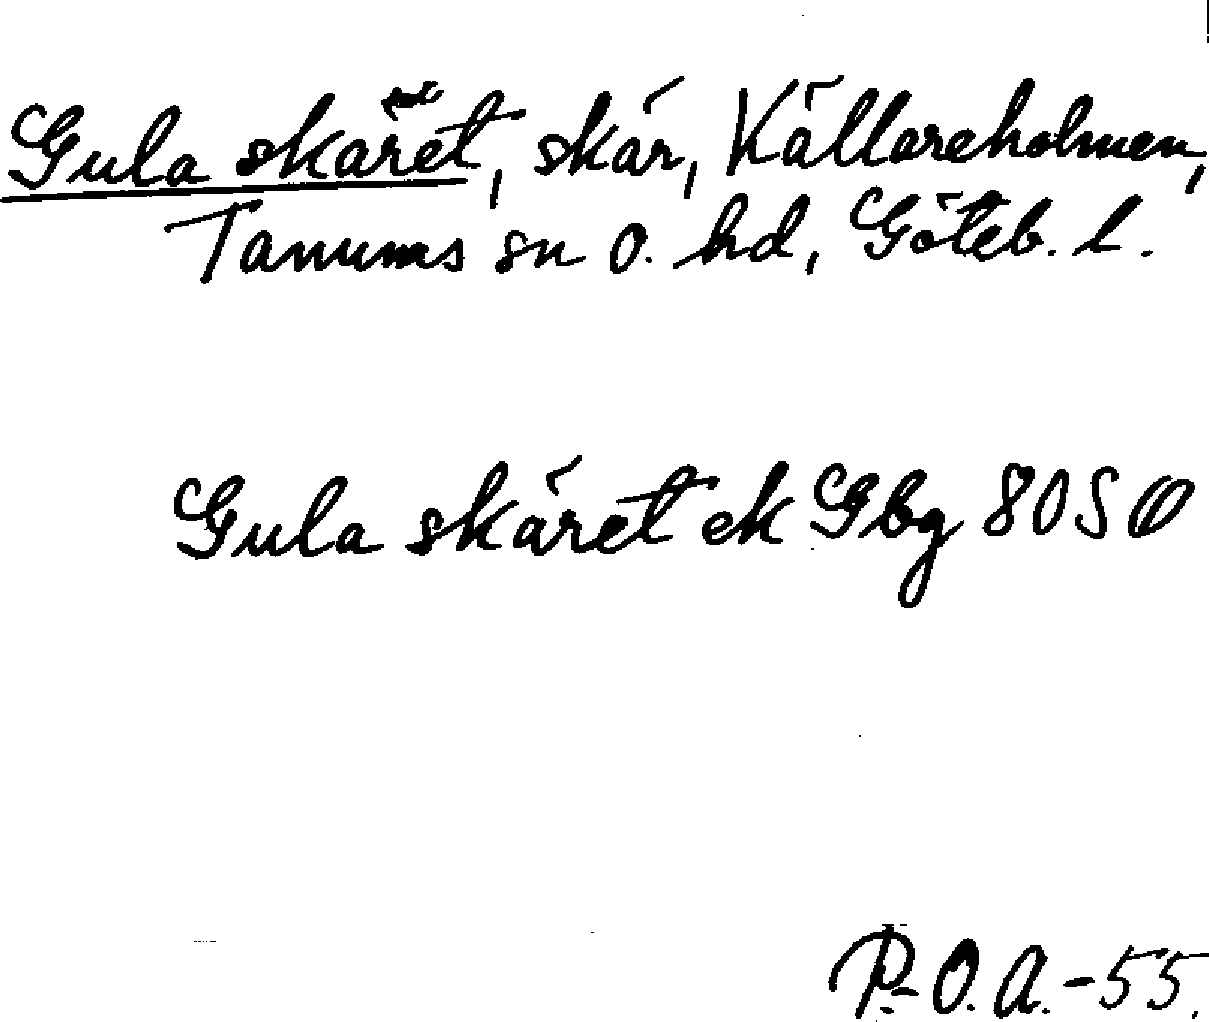 Gula skäret, skär, Källareholmen,
Tanums sn o. hd, Göteb. l.
Gula skäret ek Gbg 8050
P.O.A.-55.